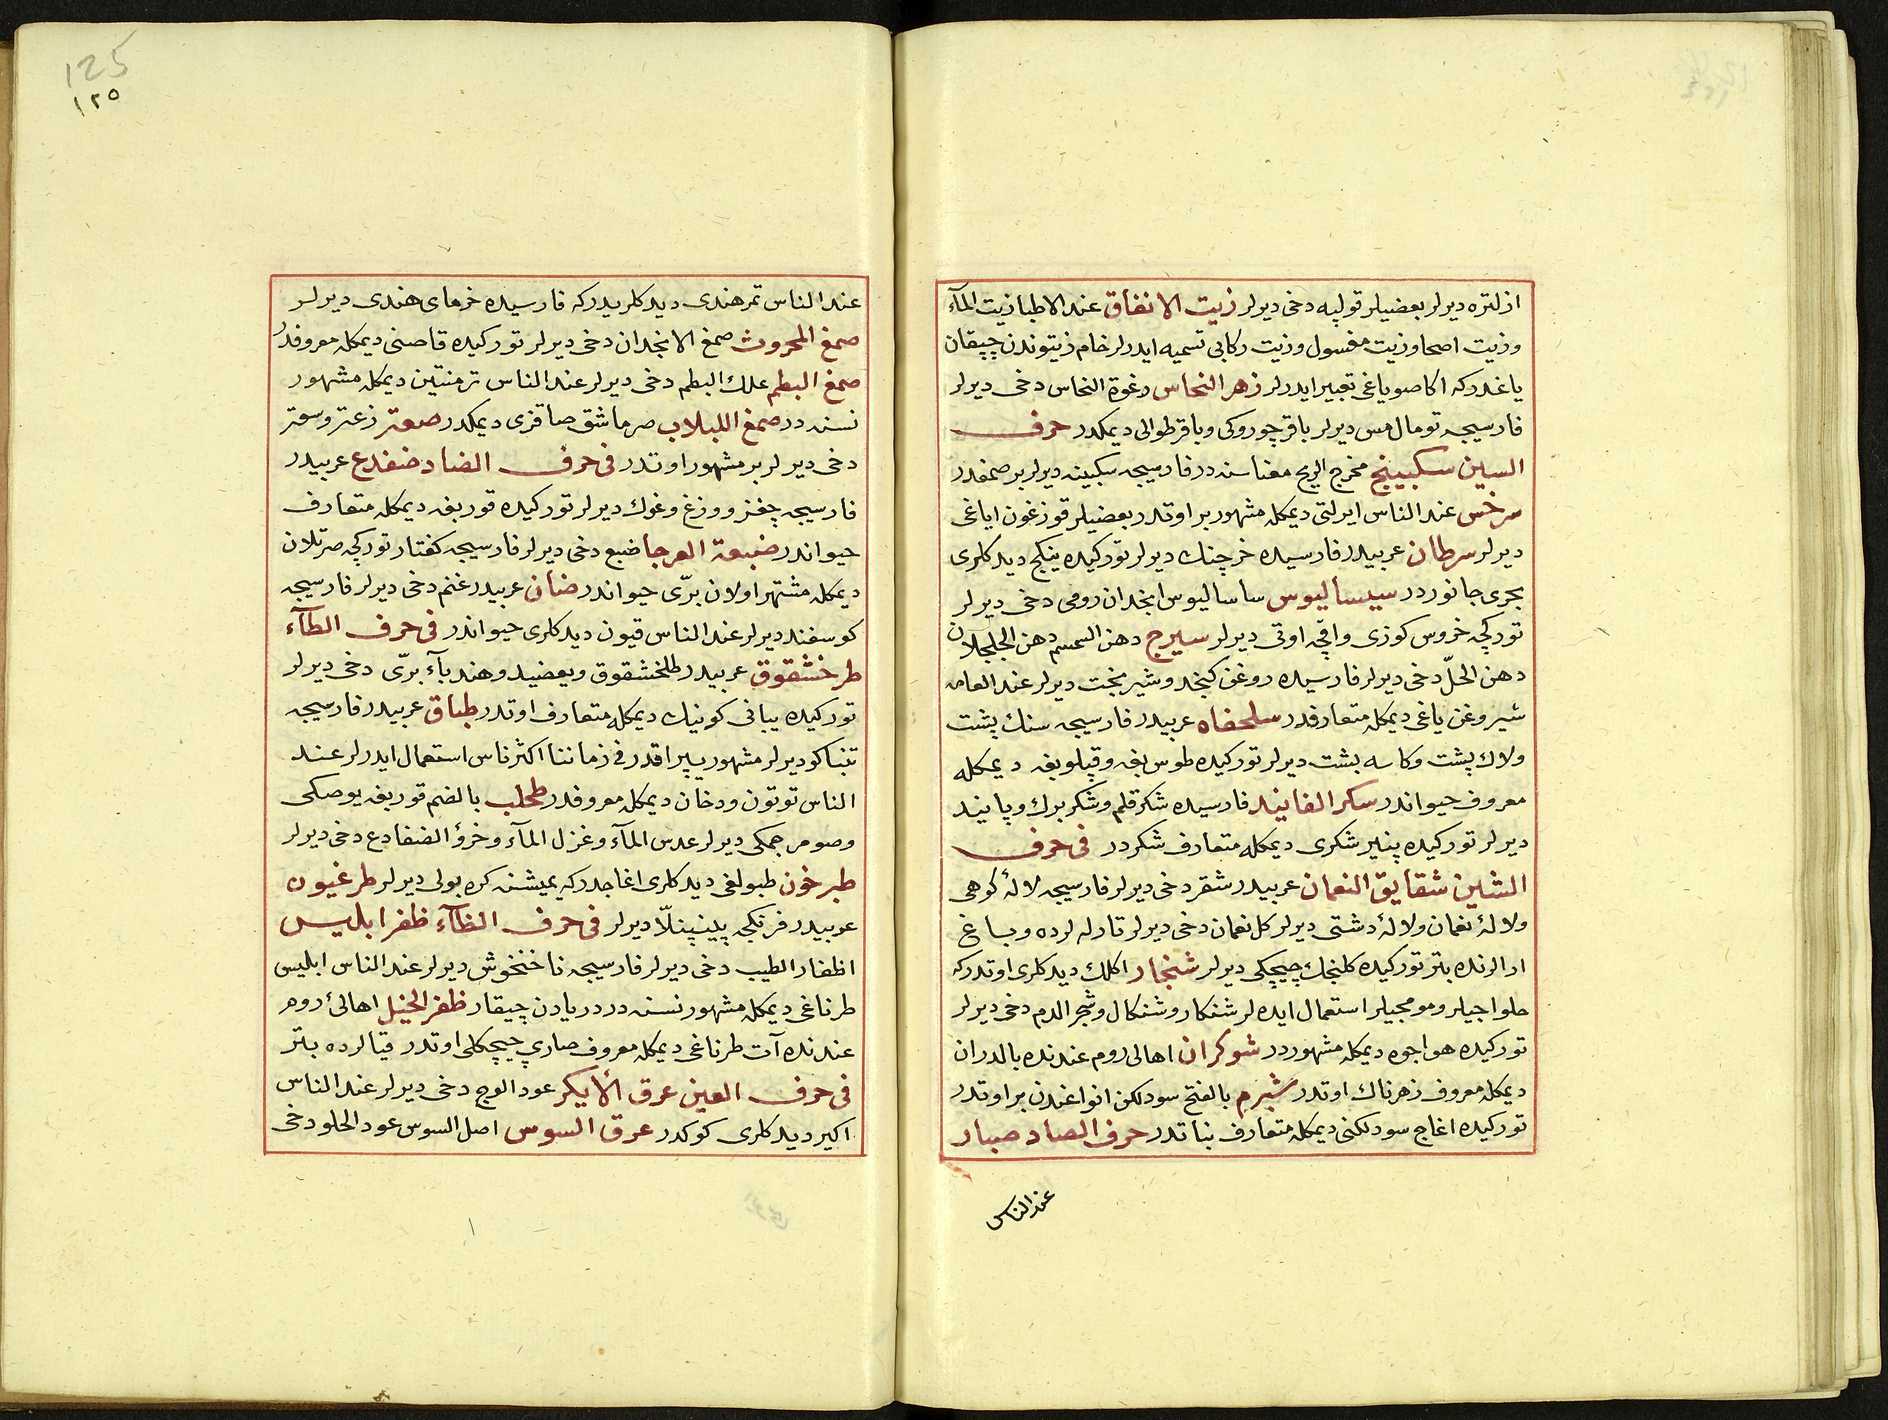 ازلتره ديرلر بعضيلر قولپه دخى ديرلر زيت الانفاق عند الاطبا زيت المآء
وزيت اصحا وزيت مغسول وزيت ركابى تسميه ايدرلر خام زيتوندن چيقان
ياغدركه اكا صو ياغى تعبير ايدرلر زهر النحاس رغوة النحاس دخى ديرلر
فارسيجه تومال مس ديرلر باقر چوروكى وباقر طوالى ديمكدر حرف
السين سكبينج مخرج الريح معناسنه در فارسيجه سكبينه ديرلر بر صمغدر
سرخس عند الناس ايرلتى ديمكله مشهور بر اوتدر بعضيلر قوزغون اياغى
ديرلر سرطان عربيدر فارسيده خرچنك ديرلر توركيده ينكج ديدكلرى
بحرى جانوردر سيساليوس ساساليوس انجدان رومى دخى ديرلر
توركچه خروس كوزى واقچه اوتى ديرلر سيرج دهن السمسم دهن الجلجلان
دهن الحلّ دخى ديرلر فارسيده روغن كنجد وشير بخت ديرلر عند العامه
شيروغن ياغى ديمكله متعارفدر سلحفاه عربيدر فارسيجه سنك پشت
ولاك پشت وكاسه پشت ديرلر توركيده طوس بغه وقپلو بغه ديمكله
معروف حيواندر سكر الفانيد فارسيده شكر قلم وشكر برك وپانيد
ديرلر توركيده پنير شكرى ديمكله متعارف شكردر فى حرف
الشين شقايق النعمان عربيدر شقر دخى ديرلر فارسيجه لالۀ كوهى
ولالۀ نعمان ولالۀ دشتى ديرلر كل نعمان دخى ديرلر تارلە لرده وباغ
ارالرنده بتر توركيده كلنجك چيچكى ديرلر شنجار اكلك ديدكلرى اوتدركه
حلواجيلر ومومجيلر استعمال ايده لر شنكار وشنكال وشجر الدم دخى ديرلر
توركيده هواجوه ديمكله مشهوردر شوكران اهالى روم عندنده بالدران
ديمكله معروف زهرناك اوتدر شبرم بالفتح سودلكن انواعندن بر اوتدر
توركيده اغاج سودلكنى ديمكله متعارف بناتدر حرف الصاد صبار
عند الناس
125
١٢٥
عند الناس تمر هندى ديدكلريدركه فارسيده خرماى هندى ديرلر
صمغ المحروث صمغ الانجدان دخى ديرلر توركيده قاصنى ديمكله معروفدر
صمغ البطم علك البطم دخى ديرلر عند الناس ترمنتين ديمكله مشهور
نسنه در صمغ اللبلاب صرماشق صاقزى ديمكدر صعتر زعتر وسعتر
دخى ديرلر بر مشهور اوتدر فى حرف الضاد ضفدع عربيدر
فارسيجه چغز ووزغ وغوك ديرلر توركيده قوربغه ديمكله متعارف
حيواندر ضبعة العرجا ضبع دخى ديرلر فارسيجه كفتار توركچه صرتلان
ديمكله مشتهر اولان برّى حيواندر ضان عربيدر غنم دخى ديرلر فارسيجه
كوسفند ديرلر عند الناس قيون ديدكلرى حيواندر فى حرف الطآء
طرخشقوق عربيدر طلخشقوق ويعضيد وهندبآء برّى دخى ديرلر
توركيده يبانى كونيك ديمكله متعارف اوتدر طباق عربيدر فارسيجه
تنباكو ديرلر مشهور يپراقدر فى زماننا اكثر ناس استعمال ايدرلر عند
الناس توتون ودخان ديمكله معروفدر طحلب بالضم قوربغه يوصكى
وصو مرجمكى ديرلر عدس المآء وغزل المآء وخرؤ الضفادع دخى ديرلر
طبرخون طبولغى ديدكلرى اغاجدركه يميشنه كره بولى ديرلر طرغيون
عربيدر فرنكجه پينپنلّا ديرلر فى حرف الظآء ظفر ابليس
اظفار الطيب دخى ديرلر فارسيجه ناخنخوش ديرلر عند الناس ابليس
طرناغى ديمكله مشهور نسنه در دريادن چيقار ظفر الخيل اهالئ روم
عندنده آت طرناغى ديمكله معروف صارى چيچكلى اوتدر قيالرده بتر
فى حرف العين عرق الأيكر عود الوج دخى ديرلر عند الناس
اكير ديدكلرى كوكدر عرق السوس اصل السوس عود الحلو دخى